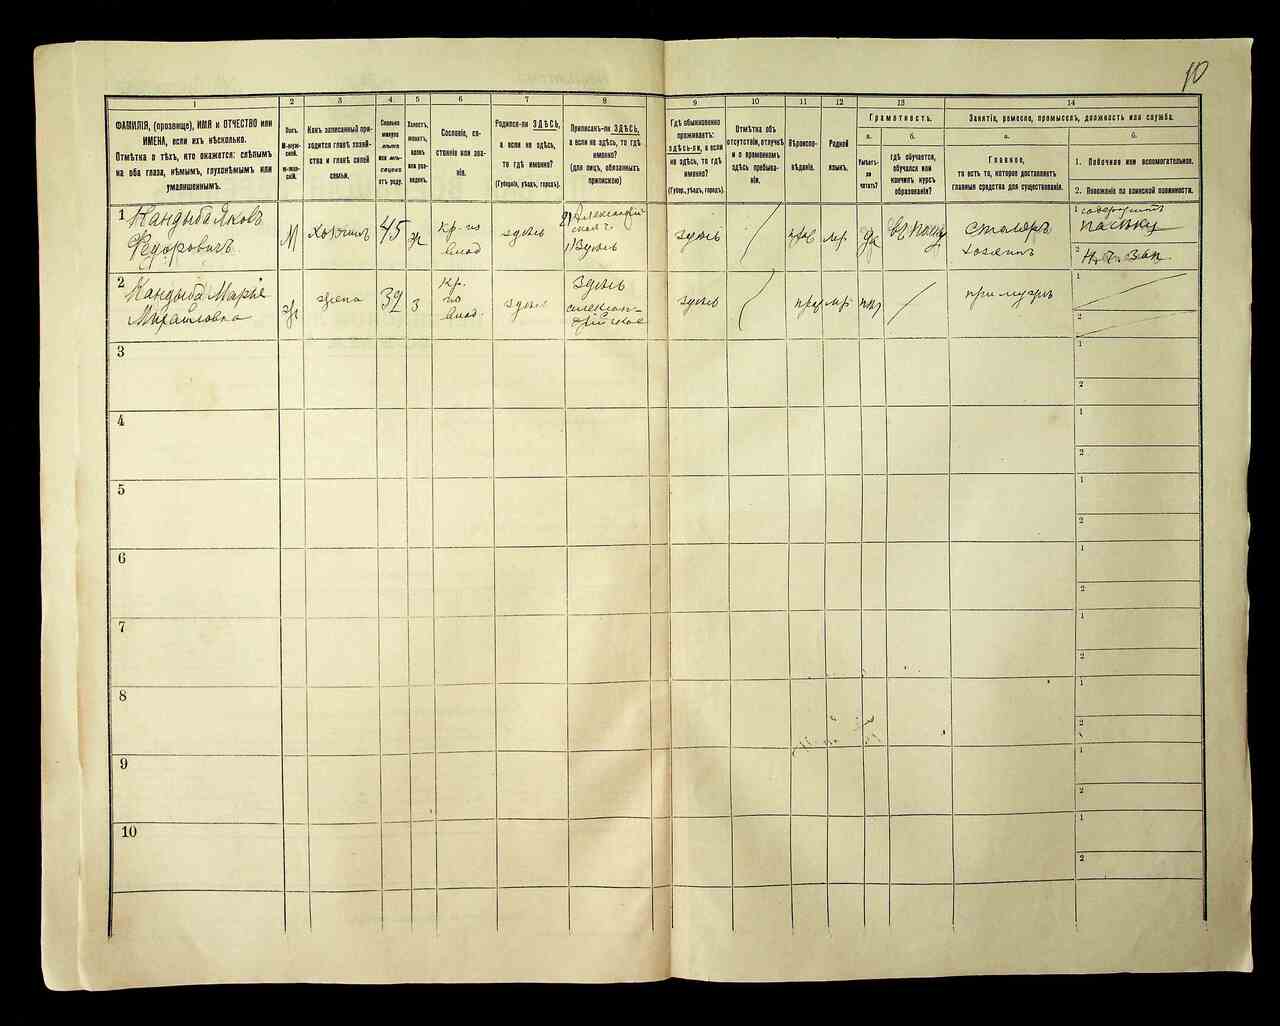 10
1
2
3
4
5
6
7
8
9
10
11
12
13
14
ФАМИЛІЯ, (прозвище), ИМЯ и ОТЧЕСТВО или
ИМЕНА, если ихъ нѣсколько.
Отмѣтка о тѣхъ, кто окажется: слѣпымъ
на оба глаза, нѣмымъ, глухонѣмымъ или
умалишеннымъ.
Полъ.
М-муж-
ской.
ж-жен-
скій.
Какъ записанный при-
ходится главѣ хозяй-
ства и главѣ своей
семьи.
Сколько
минуло
лѣтъ
или мѣ-
сяцевъ
отъ роду.
Холостъ,
женатъ,
вдовъ
или раз-
веденъ.
Сословіе, со-
стояніе или зва-
ніе.
Родился-ли ЗДѢСЬ,
а если не здѣсь,
то гдѣ именно?
(Губернія, уѣздъ, городъ).
Приписанъ-ли ЗДѢСЬ,
а если не здѣсь, то гдѣ
именно?
(для лицъ, обязанныхъ
припискою)
Гдѣ обыкновенно
проживаетъ:
здѣсь-ли, а если
не здѣсь, то гдѣ
именно?
(Губер., уѣздъ, городъ).
Отмѣтка объ
отсутствіи, отлучкѣ
и о временномъ
здѣсь пребыва-
ніи.
Вѣроиспо-
вѣданіе.
Родной
языкъ.
Грамотность.
а.
Умѣетъ-
ли
читать?
б.
гдѣ обучается,
обучался или
кончилъ курсъ
образованія?
Занятіе, ремесло, промыселъ, должность или служба.
а.
Главное,
то есть то, которое доставляетъ
главныя средства для существованія.
б.
1. Побочное или вспомогательное.
2. Положеніе по воинской повинности.
1
Кандыба Яковъ
Федоровичъ
М
хозяинъ
45
ж
кр. по
влад
здѣсь
2) Александрій
ская г.
1) Здѣсь
здѣсь
прав
мр.
да
столяръ
хозяинъ
1 содержитъ
пасѣку
2
2
Кандыба Марья
Михайловна
ж
жена
39
з
кр.
по
влад.
здѣсь
Здѣсь
александ-
рійское
здѣсь
прав
мр.
нѣт
при мужѣ
1
2
3
1
2
4
1
2
5
1
2
6
1
2
7
1
2
8
1
2
9
1
2
10
1
2